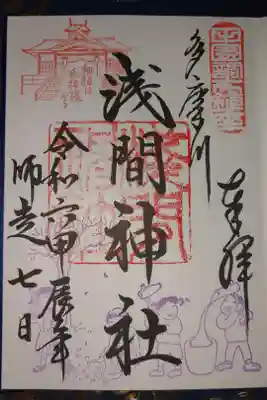 多摩川
奉拝
浅間神社
令和六甲辰年
師走七日